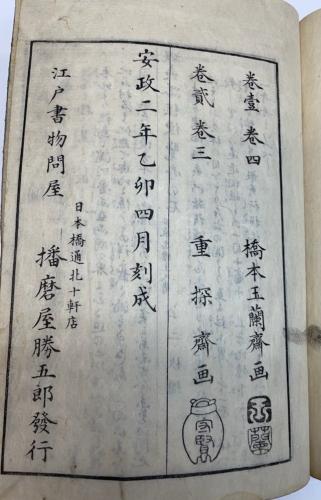 卷壹 卷四 橋本玉蘭齋画 玉蘭
卷貳 卷三 重探齋画
安政二年乙卯四月刻成
日本橋通北十軒店
江戸書物問屋 播磨屋勝五郎發行